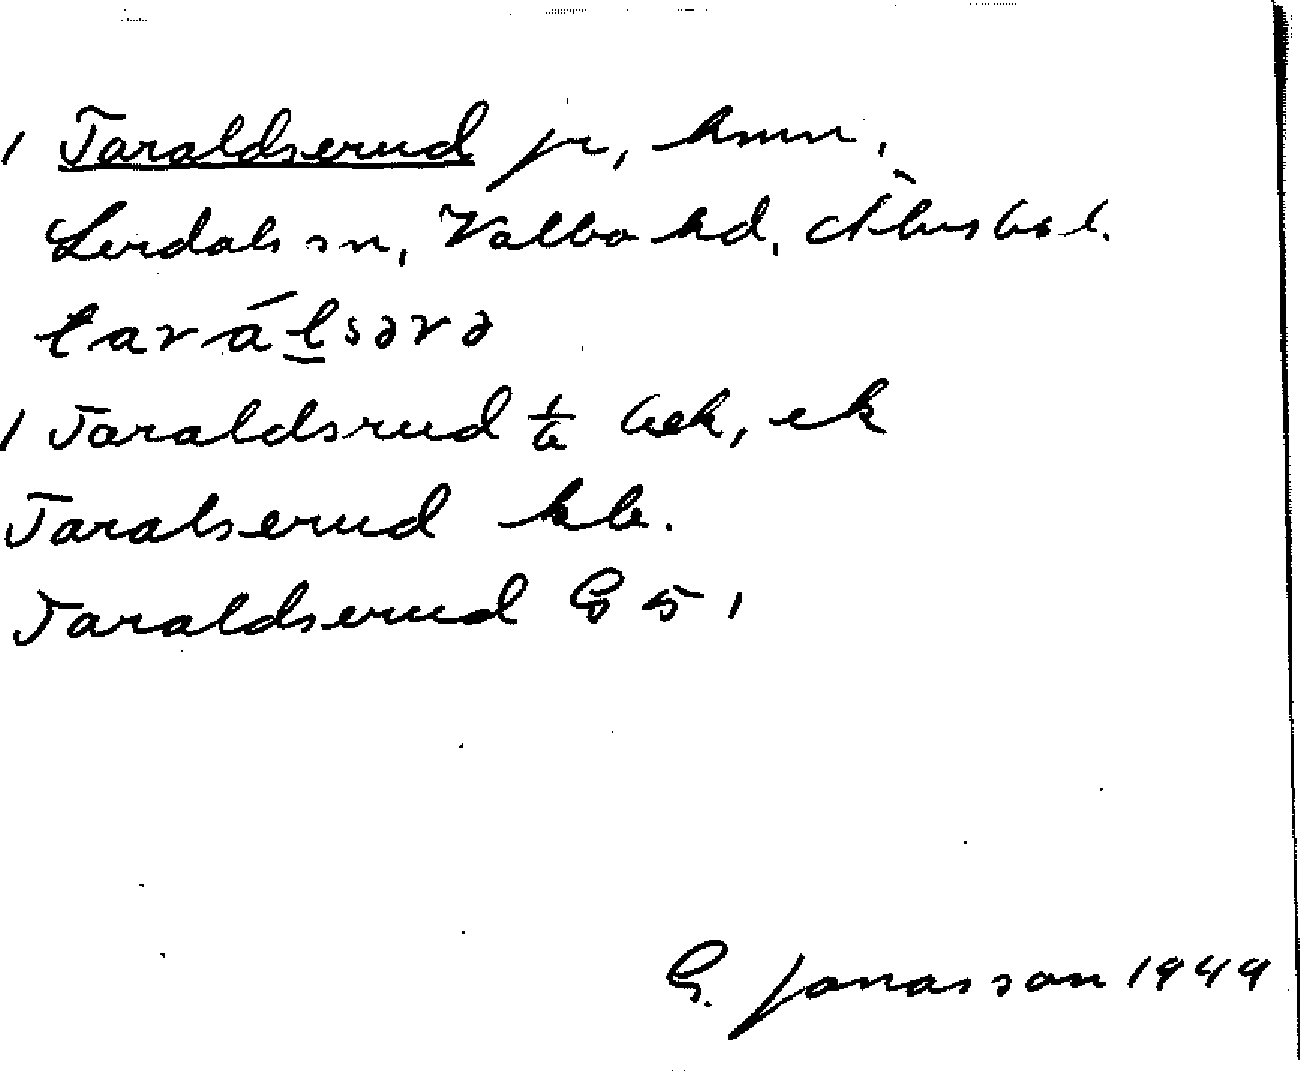 1 Taraldserud jr, hmn,
Lerdals sn, Valbo hd, Älvsb. l.
tarálsərə
1 Taraldsrud 1/6 bek, ek
Taralserud kb.
Taraldserud G 5 1
G. Jonasson 1949